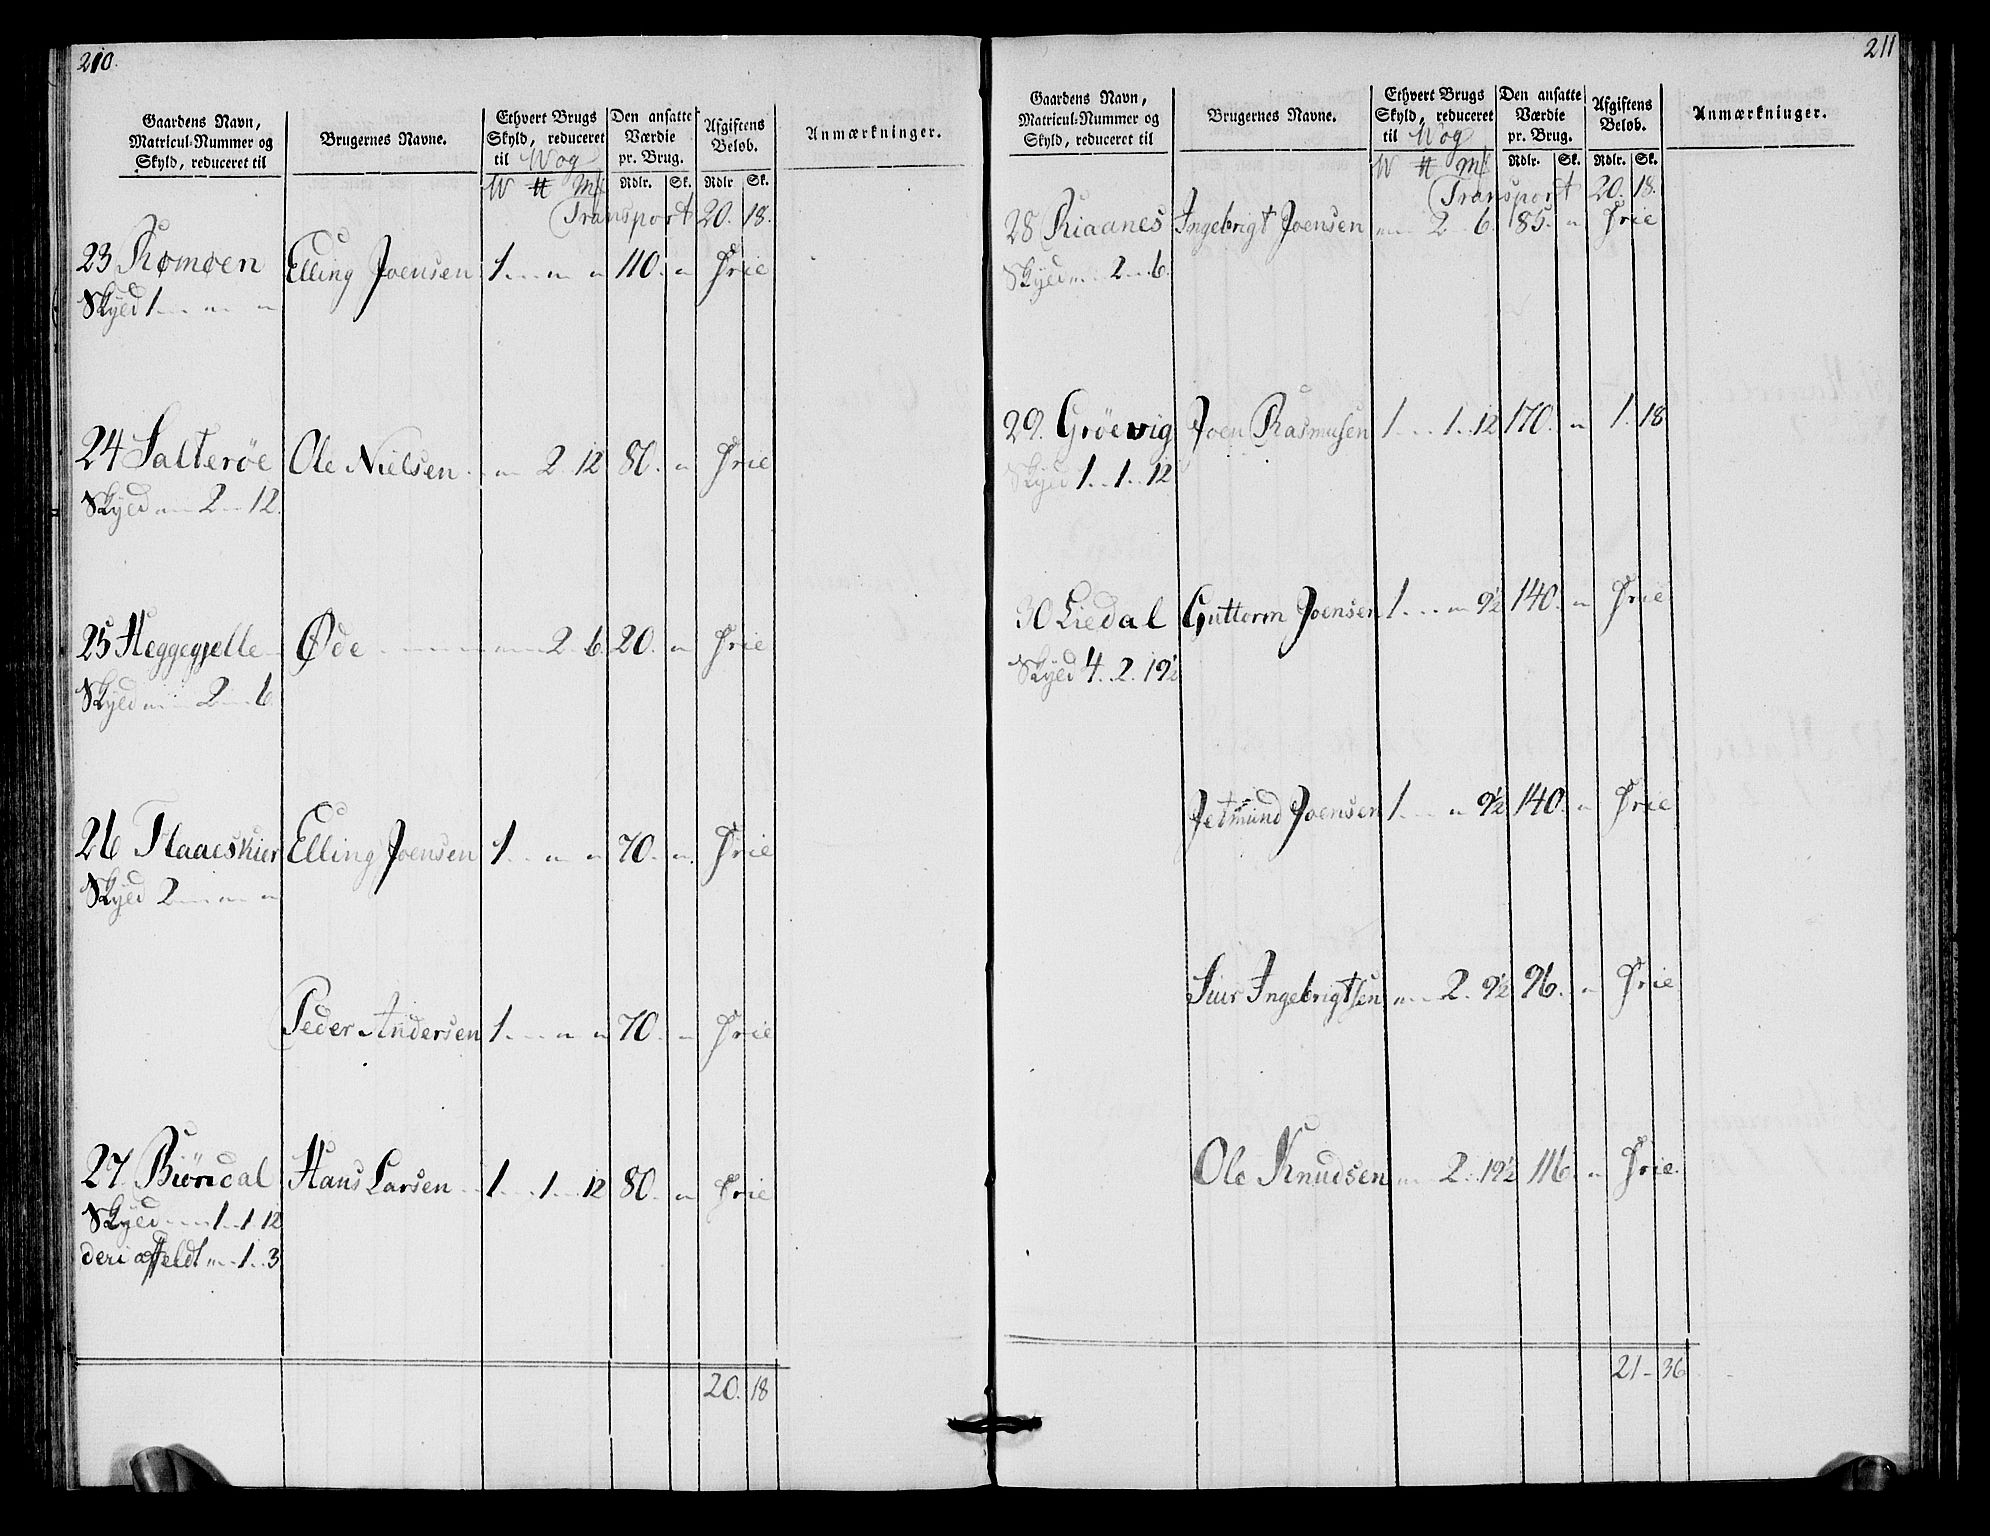 210.
Gaardens Navn, Matricul-Nummer og Skyld, reduceret til
Brugernes Navne.
Ethvert Brugs Skyld, reduceret til Wog
W # Mk
Den ansatte Værdie pr. Brug.
Rdlr. Sk.
Afgiftens Beløb.
Rdlr Sk.
Anmærkninger.
Transport 20. 18.
23 Rømøen Elling Joensen 1 .. " " 110. " Frie
Skyld 1 .. " "
24 Salterøe Ole Nielsen " 2 12 80. " Frie
Skyld " 2 12.
25 Heggegjelle Øde " 2 6. 20. " Frie
Skyld " 2 6.
26 Flaaeskier Elling Joensen 1 .. " " 70. " Frie
Skyld 2 " "
Peder Andersen 1 .. " " 70. " Frie
27. Biørdal Hans Larsen 1 .. 1 .. 12 80. " Frie
Skyld 1 .. 1 12
deri affeldt " 1 .. 3
20. 18
211
Gaardens Navn, Matricul-Nummer og Skyld, reduceret til
Brugernes Navne.
Ethvert Brugs Skyld, reduceret til Wog
W # Mk
Den ansatte Værdie pr. Brug.
Rdlr. Sk.
Afgiftens Beløb.
Rdlr. Sk.
Anmærkninger.
Transport 20. 18.
28 Riaanes Ingebrigt Joensen " 2 6. 85. " Frie
Skyld " 2 6.
29. Grøevig Joen Rasmusen 1 .. 1 .. 12 170. " 1. 18
Skyld 1 .. 1 .. 12
30 Liedal Guttorm Joensen 1 .. " 9½ 140. " Frie
Skyld 4 .. 2. 19½
Jetmund Joensen 1 .. " 9½ 140. " Frie
Siur Ingebrigtsen " 2. 9½ 96. " Frie
Ole Knudsen " 2. 19½ 116. " Frie.
21 - 36